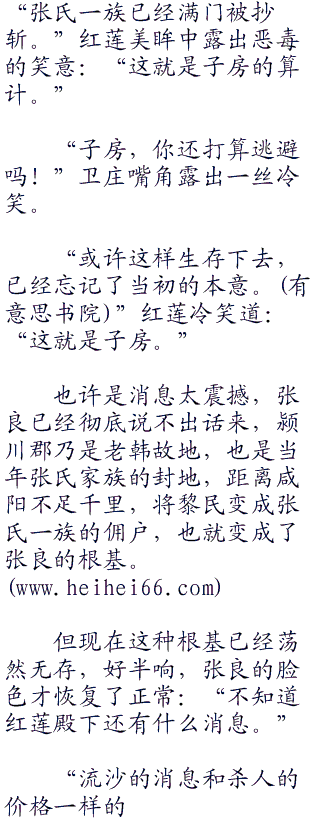 “张氏一族已经满门被抄
斩。”红莲美眸中露出恶毒
的笑意：“这就是子房的算
计。”
“子房，你还打算逃避
吗！”卫庄嘴角露出一丝冷
笑。
“或许这样生存下去，
已经忘记了当初的本意。(有
意思书院)”红莲冷笑道：
“这就是子房。”
也许是消息太震撼，张
良已经彻底说不出话来，颍
川郡乃是老韩故地，也是当
年张氏家族的封地，距离咸
阳不足千里，将黎民变成张
氏一族的佣户，也就变成了
张良的根基。
(www.heihei66.com)
但现在这种根基已经荡
然无存，好半响，张良的脸
色才恢复了正常：“不知道
红莲殿下还有什么消息。”
“流沙的消息和杀人的
价格一样的